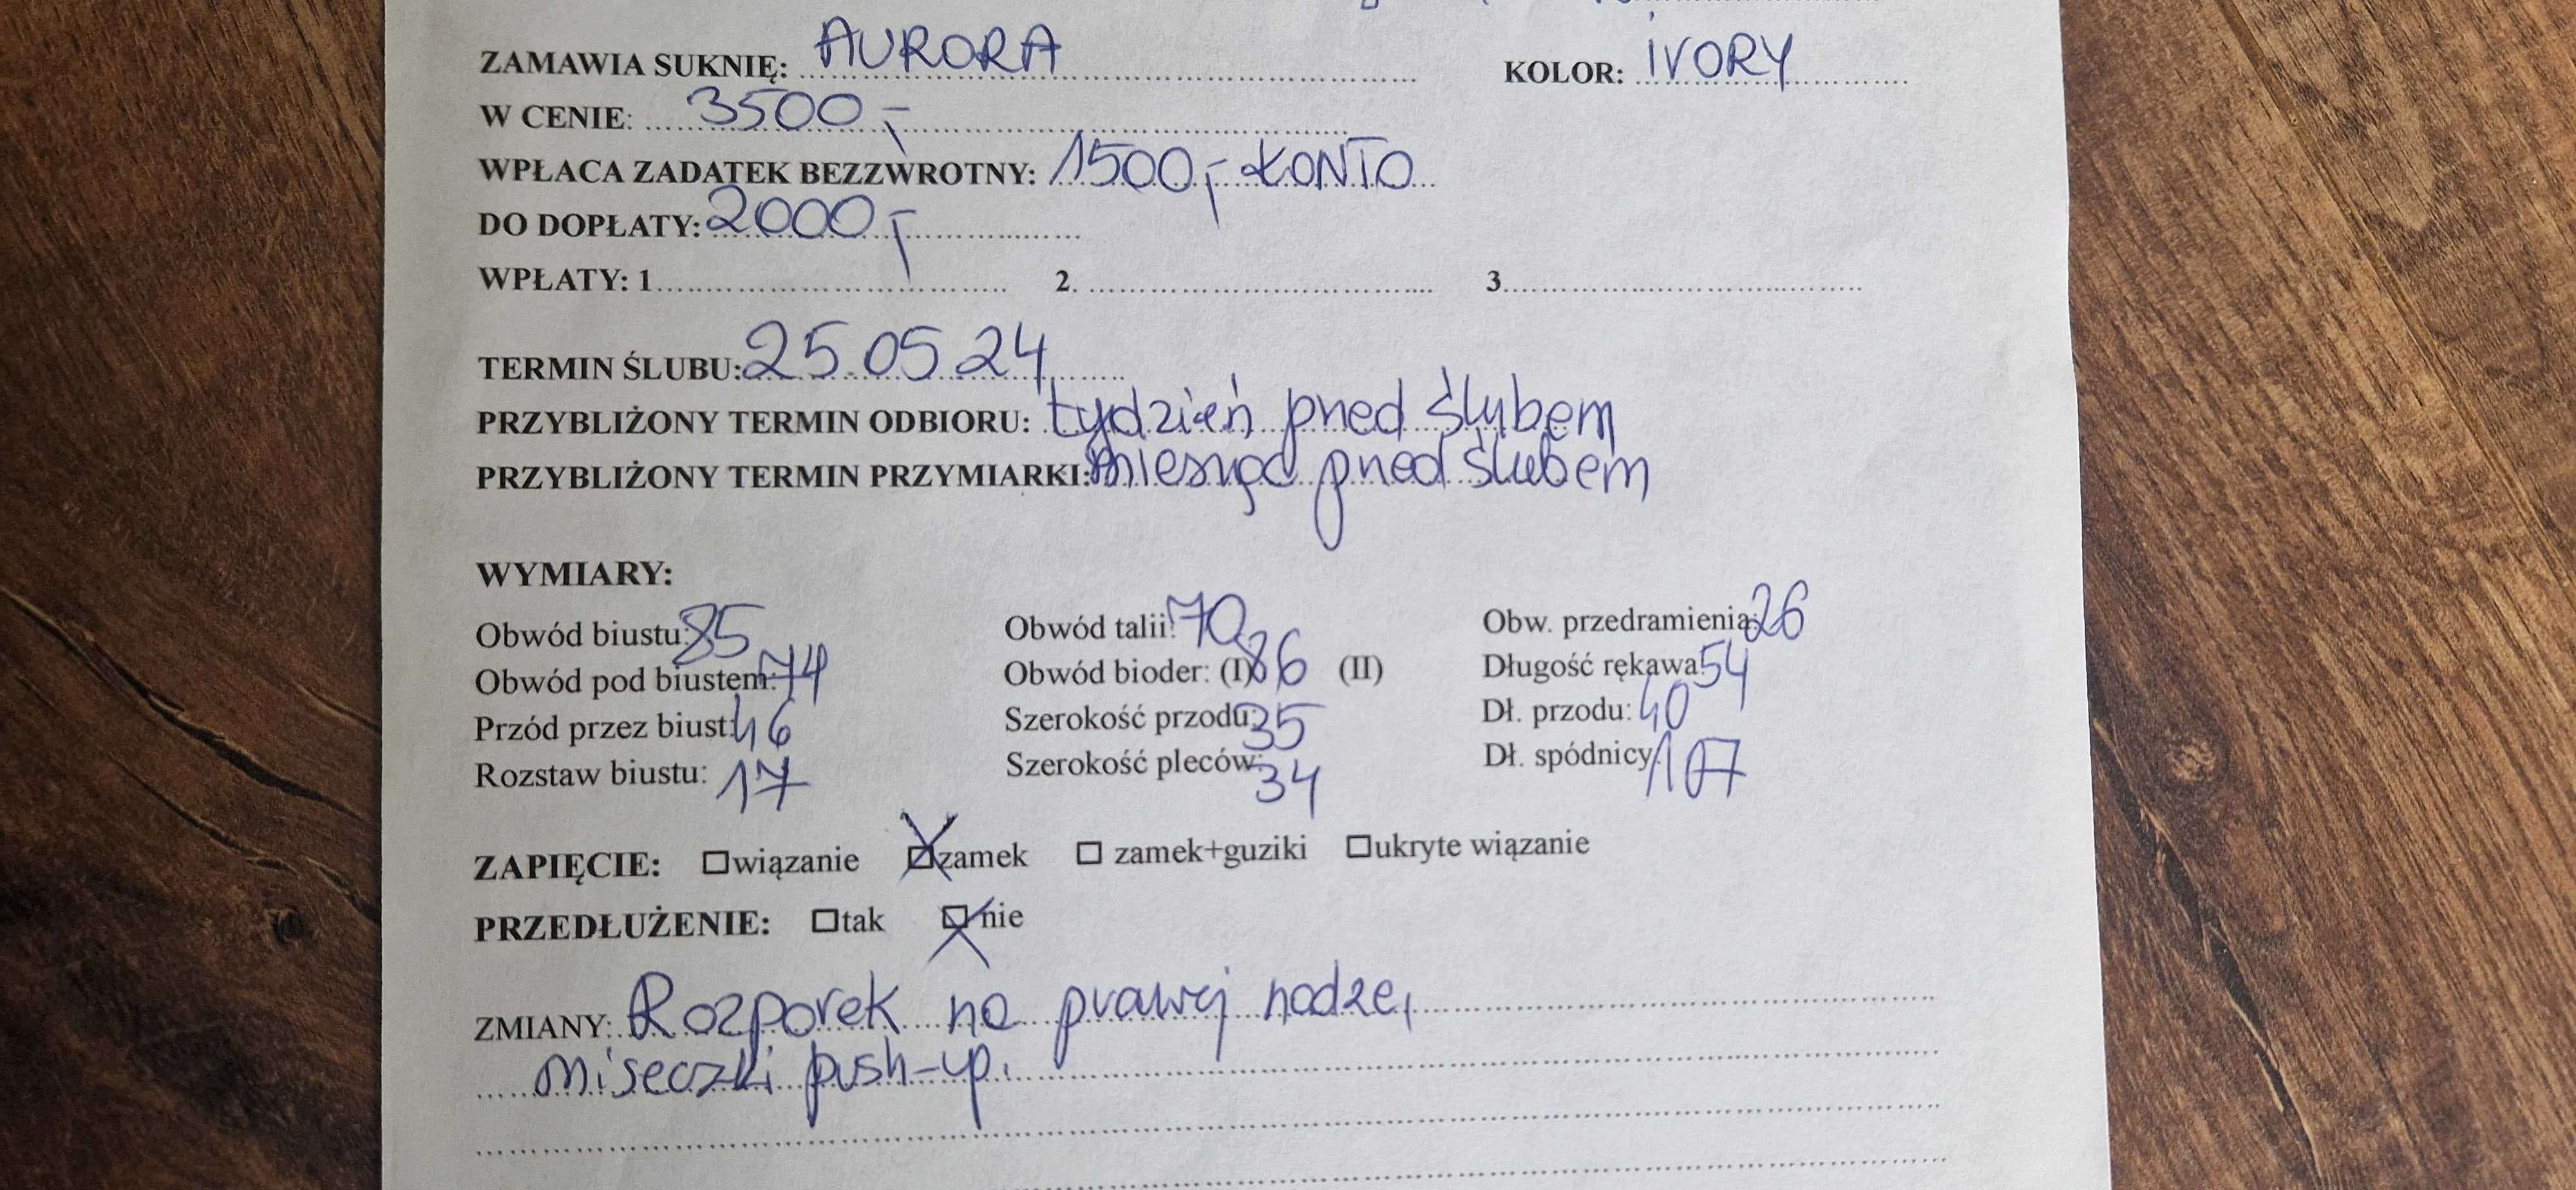 ZAMAWIA SUKNIĘ: AURORA KOLOR: IVORY
W CENIE: 3500,-
WPŁACA ZADATEK BEZZWROTNY: 1500,- KONTO
DO DOPŁATY: 2000,-
WPŁATY: 1 2. 3
TERMIN ŚLUBU: 25.05.24
PRZYBLIŻONY TERMIN ODBIORU: tydzień przed ślubem
PRZYBLIŻONY TERMIN PRZYMIARKI: miesiąc przed ślubem
WYMIARY:
Obwód biustu: 85 Obwód talii: 70 Obw. przedramienia: 26
Obwód pod biustem: 74 Obwód bioder: (I) 86 (II) Długość rękawa: 54
Przód przez biust: 46 Szerokość przodu: 35 Dł. przodu: 40
Rozstaw biustu: 17 Szerokość pleców: 34 Dł. spódnicy: 107
ZAPIĘCIE: wiązanie zamek zamek+guziki ukryte wiązanie
PRZEDŁUŻENIE: tak nie
ZMIANY: Rozporek na prawej nodze,
miseczki push-up.